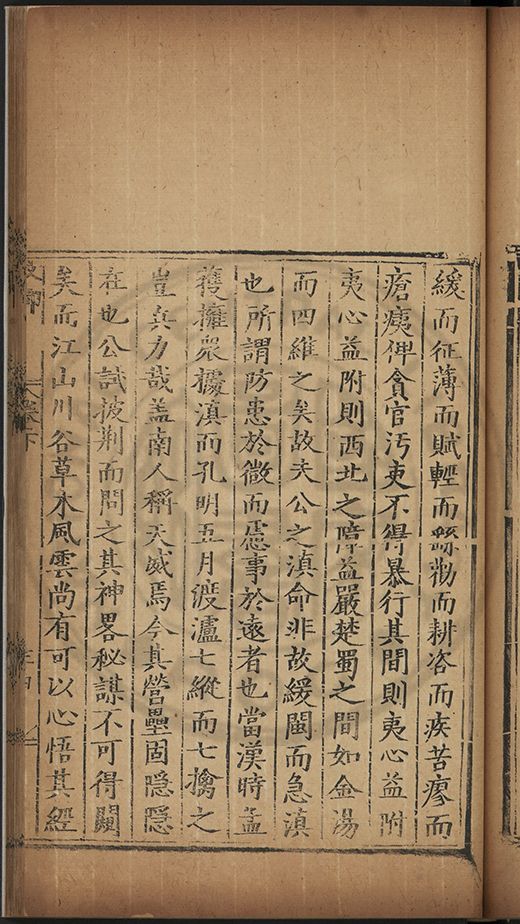 緩而征薄而賦輕而繇勸而耕咨而疾苦瘳而
瘡痍俾貪官污吏不得暴行其間則夷心益附
夷心益附則西北之障益嚴楚蜀之間如金湯
而四維之矣故夫公之滇命非故緩閩而急滇
也所謂防患於微而慮事於遠者也當漢時孟
獲擁衆據滇而孔明五月渡瀘七縱而七擒之
豈真力哉盖南人稱天威焉今其營壘固隱隱
在也公試披荆而問之其神畧秘謀不可得闚
矣而江山川谷草木風雲尚有可以心悟其經
卷下